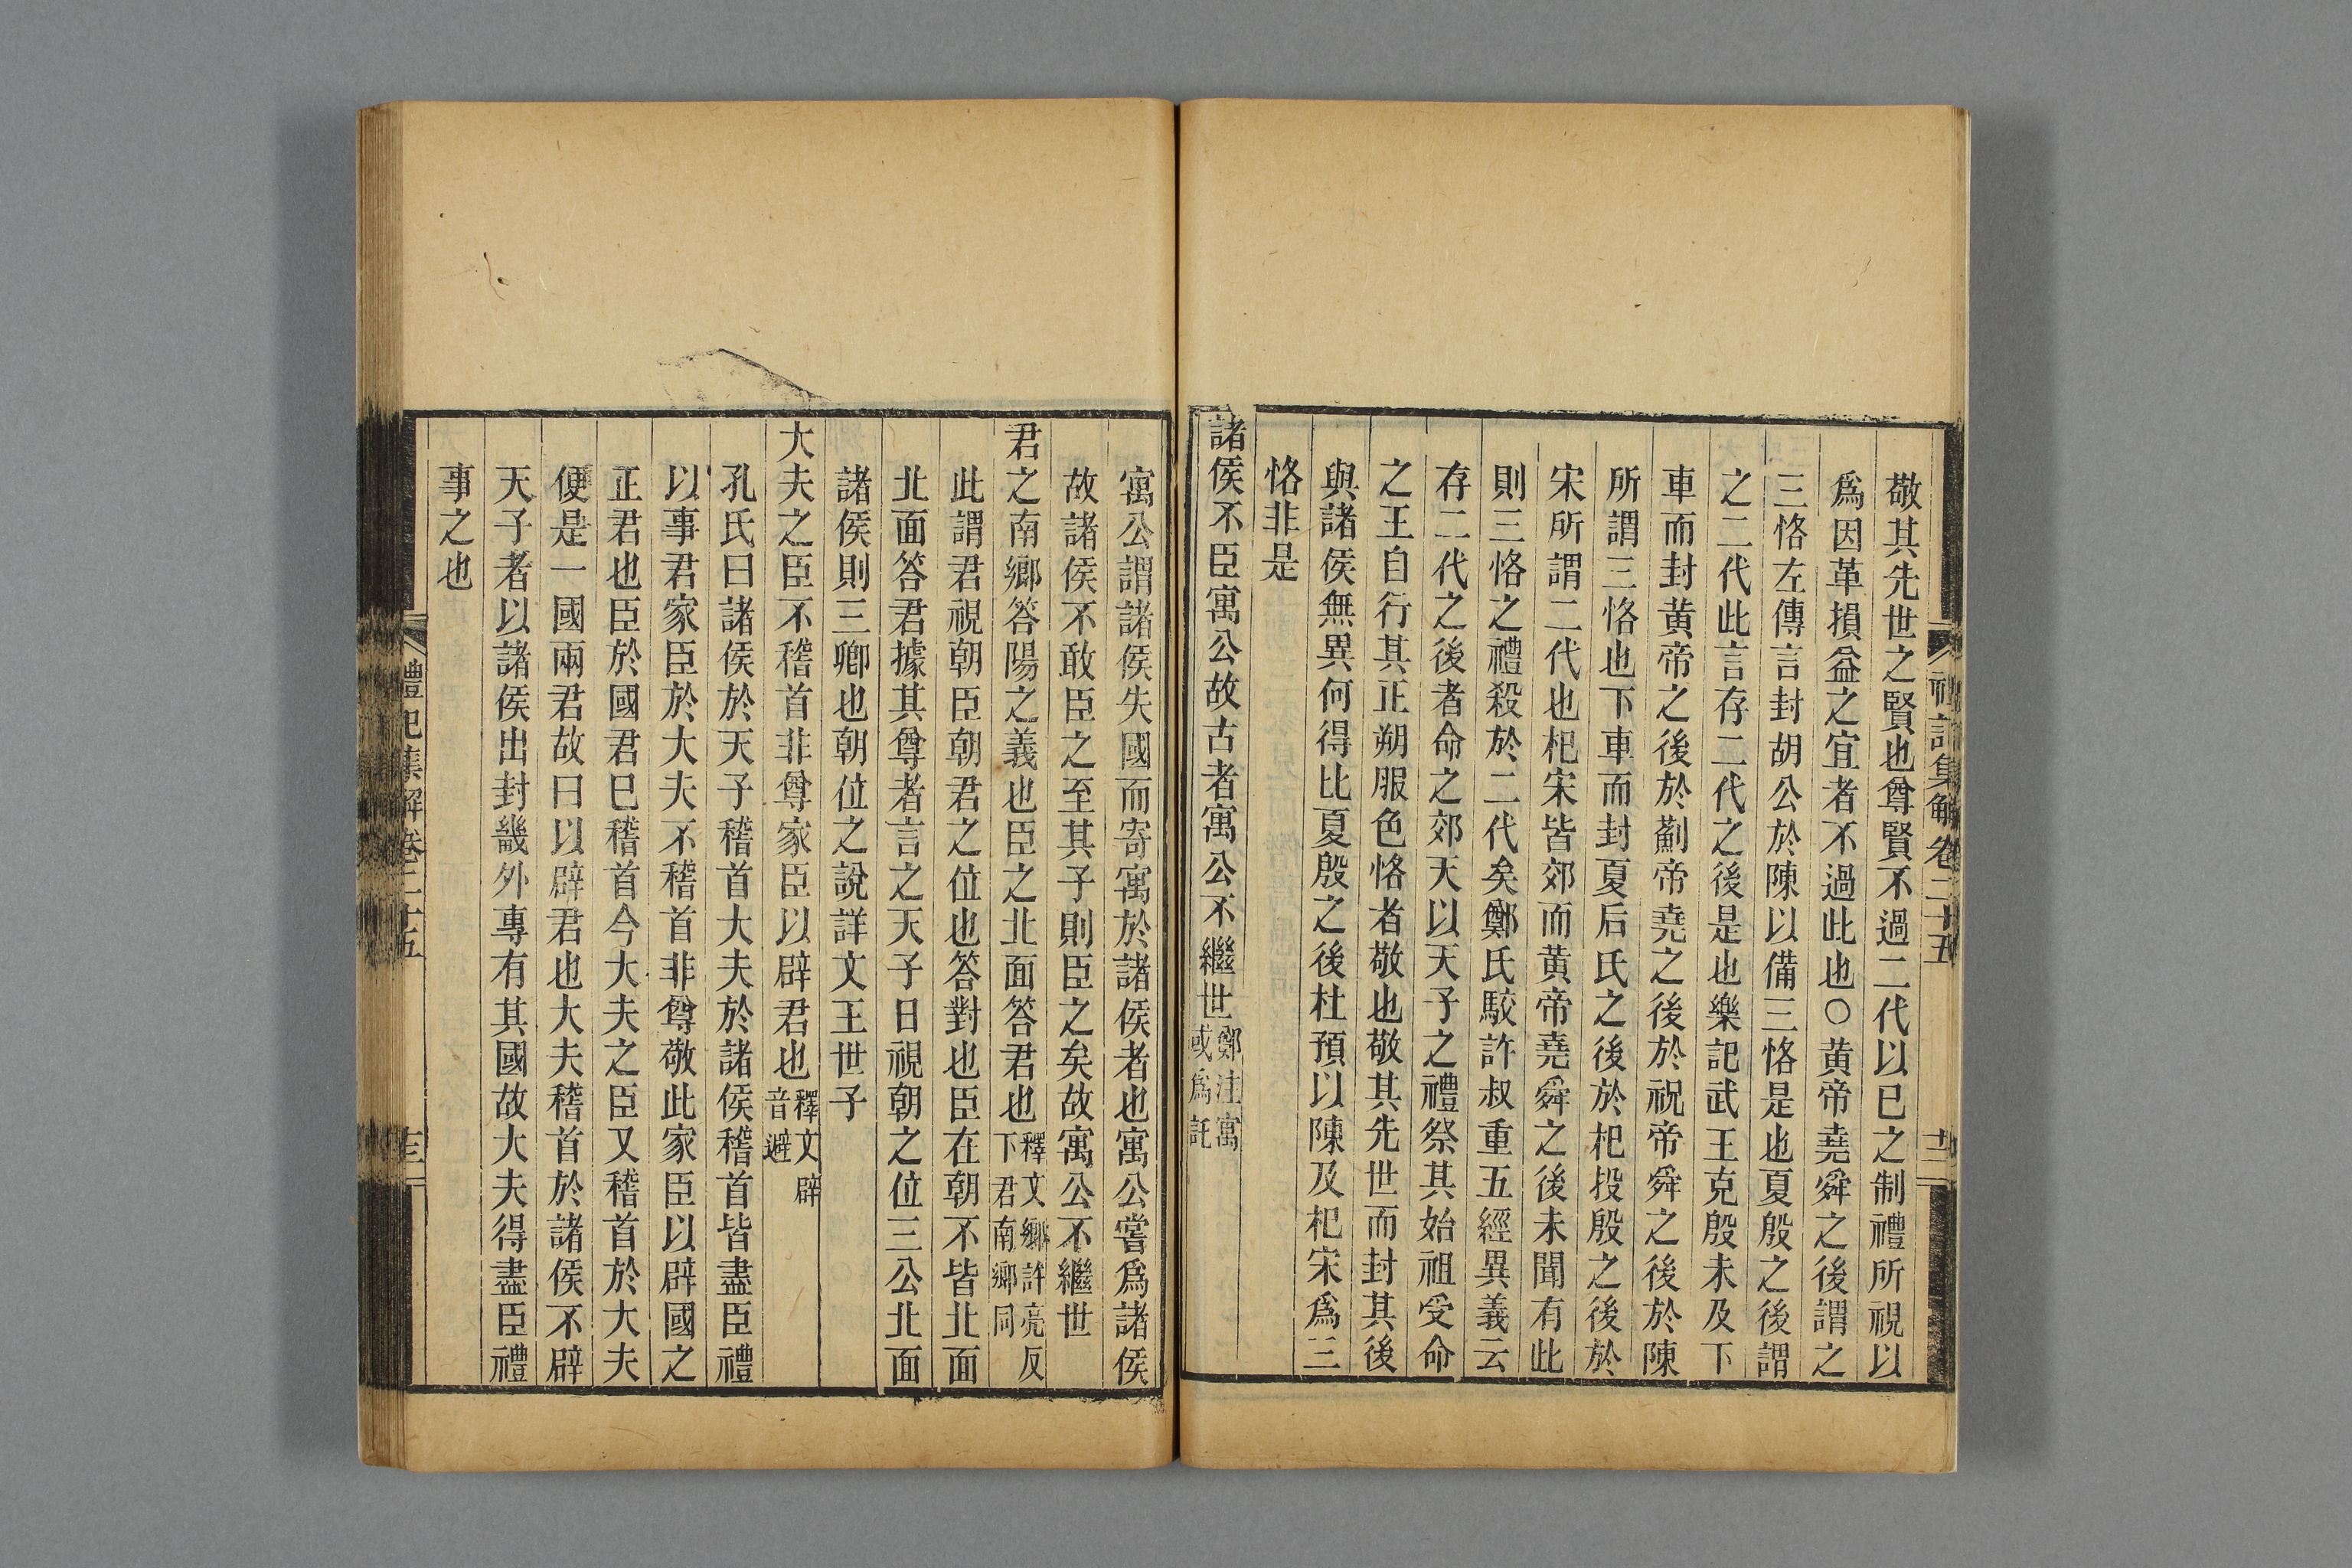 禮記集解卷二十五
十二
敬其先世之賢也尊賢不過二代以已之制禮所視以
爲因革損益之宜者不過此也○黃帝堯舜之後謂之
三恪左傳言封胡公於陳以備三恪是也夏殷之後謂
之二代此言存二代之後是也樂記武王克殷未及下
車而封黃帝之後於薊帝堯之後於祝帝舜之後於陳
所謂三恪也下車而封夏后氏之後於杞投殷之後於
宋所謂二代也杞宋皆郊而黃帝堯舜之後未聞有此
則三恪之禮殺於二代矣鄭氏駮許叔重五經異義云
存二代之後者命之郊天以天子之禮祭其始祖受命
之王自行其正朔服色恪者敬也敬其先世而封其後
與諸侯無異何得比夏殷之後杜預以陳及杞宋爲三
恪非是
諸侯不臣寓公故古者寓公不繼世鄭注寓
或爲託
寓公謂諸侯失國而寄寓於諸侯者也寓公嘗爲諸侯
故諸侯不敢臣之至其子則臣之矣故寓公不繼世
君之南鄉答陽之義也臣之北面答君也釋文鄉許亮反
下君南鄉同
此謂君視朝臣朝君之位也答對也臣在朝不皆北面
北面答君據其尊者言之天子日視朝之位三公北面
諸侯則三卿也朝位之說詳文王世子
大夫之臣不稽首非尊家臣以辟君也釋文辟
音避
孔氏曰諸侯於天子稽首大夫於諸侯稽首皆盡臣禮
以事君家臣於大夫不稽首非尊敬此家臣以辟國之
正君也臣於國君巳稽首今大夫之臣又稽首於大夫
便是一國兩君故曰以辟君也大夫稽首於諸侯不辟
天子者以諸侯出封畿外專有其國故大夫得盡臣禮
事之也
禮記集解卷二十五
十三